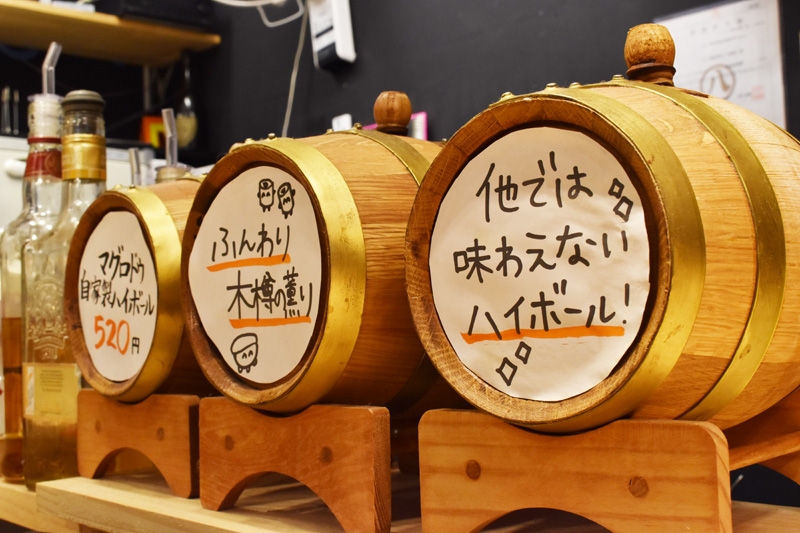 マグロドウ
自家製ハイボール
520円
ふんわり
木樽の薫り
他では
味わえない
ハイボール!